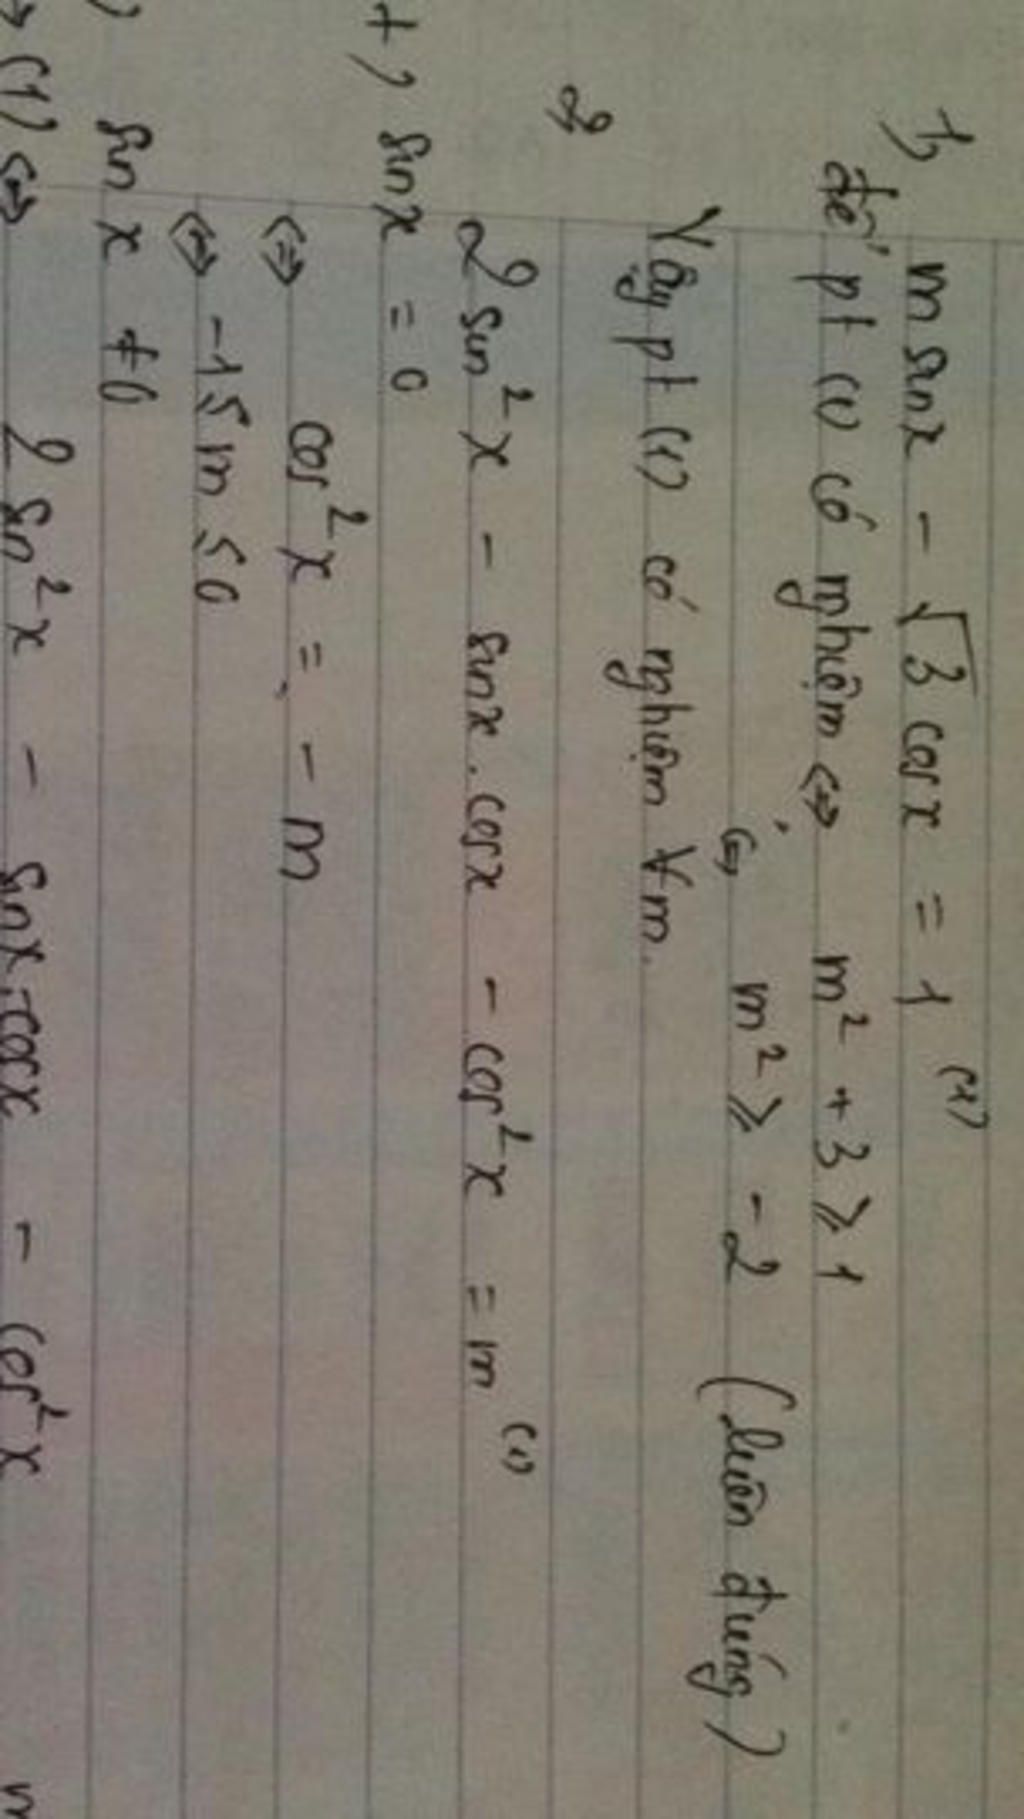 1, m sinx - √3 cosx = 1 (1)
để pt (1) có nghiệm ⇔ m² + 3 ≥ 1
⇔ m² ≥ -2 (luôn đúng)
Vậy pt (1) có nghiệm ∀m.
2,
2 sin²x - sinx.cosx - cos²x = m (1)
+, sinx = 0
⇔ cos²x = -m
⇔ -1 ≤ m ≤ 0
sin x ≠ 0
(1) ⇔ 2 sin²x - sinx.cosx - cos²x